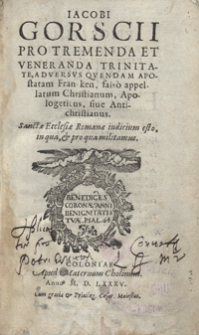 IACOBI
GORSCII
PRO TREMENDA ET
VENERANDA TRINITA-
TE, ADVERSVS QVENDAM APO-
statam Franken, falsò appel-
latum Christianum, Apo-
logeticus, siue Anti-
christianus.
Sanctæ Ecclesiæ Romanæ iudicium esto,
in qua, & pro qua militamus.
BENEDICES
CORONÆ ANNI
BENIGNITATIS
TVÆ PSAL. 64
COLONIAE
Apud Maternum Cholinum.
Anno M. D. LXXXV.
Cum gratia & Priuileg. Cæsar. Maiestat.